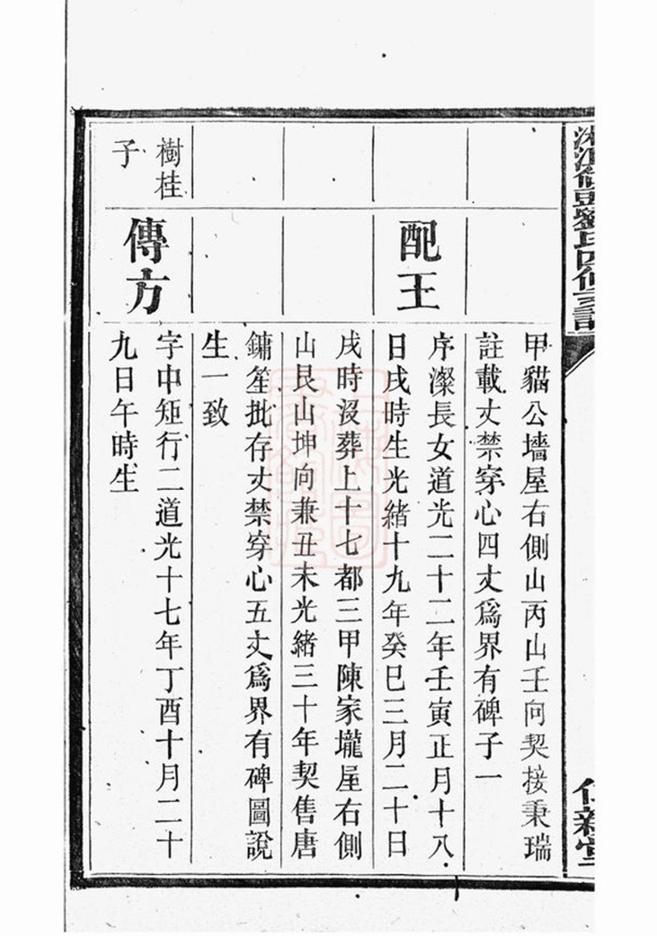 甲貓公墻屋右側山丙山壬向契接秉瑞
註載丈禁穿心四丈爲界有碑子一
配王
序潔長女道光二十二年壬寅正月十八
日戌時生光緒十九年癸巳三月二十日
戌時沒葬上十七都三甲陳家壠屋右側
山艮山坤向兼丑未光緒三十年契售唐
鏞笙批存丈禁穿心五丈爲界有碑圖說
生一致
樹桂
子
傳方
字中矩行二道光十七年丁酉十月二十
九日午時生